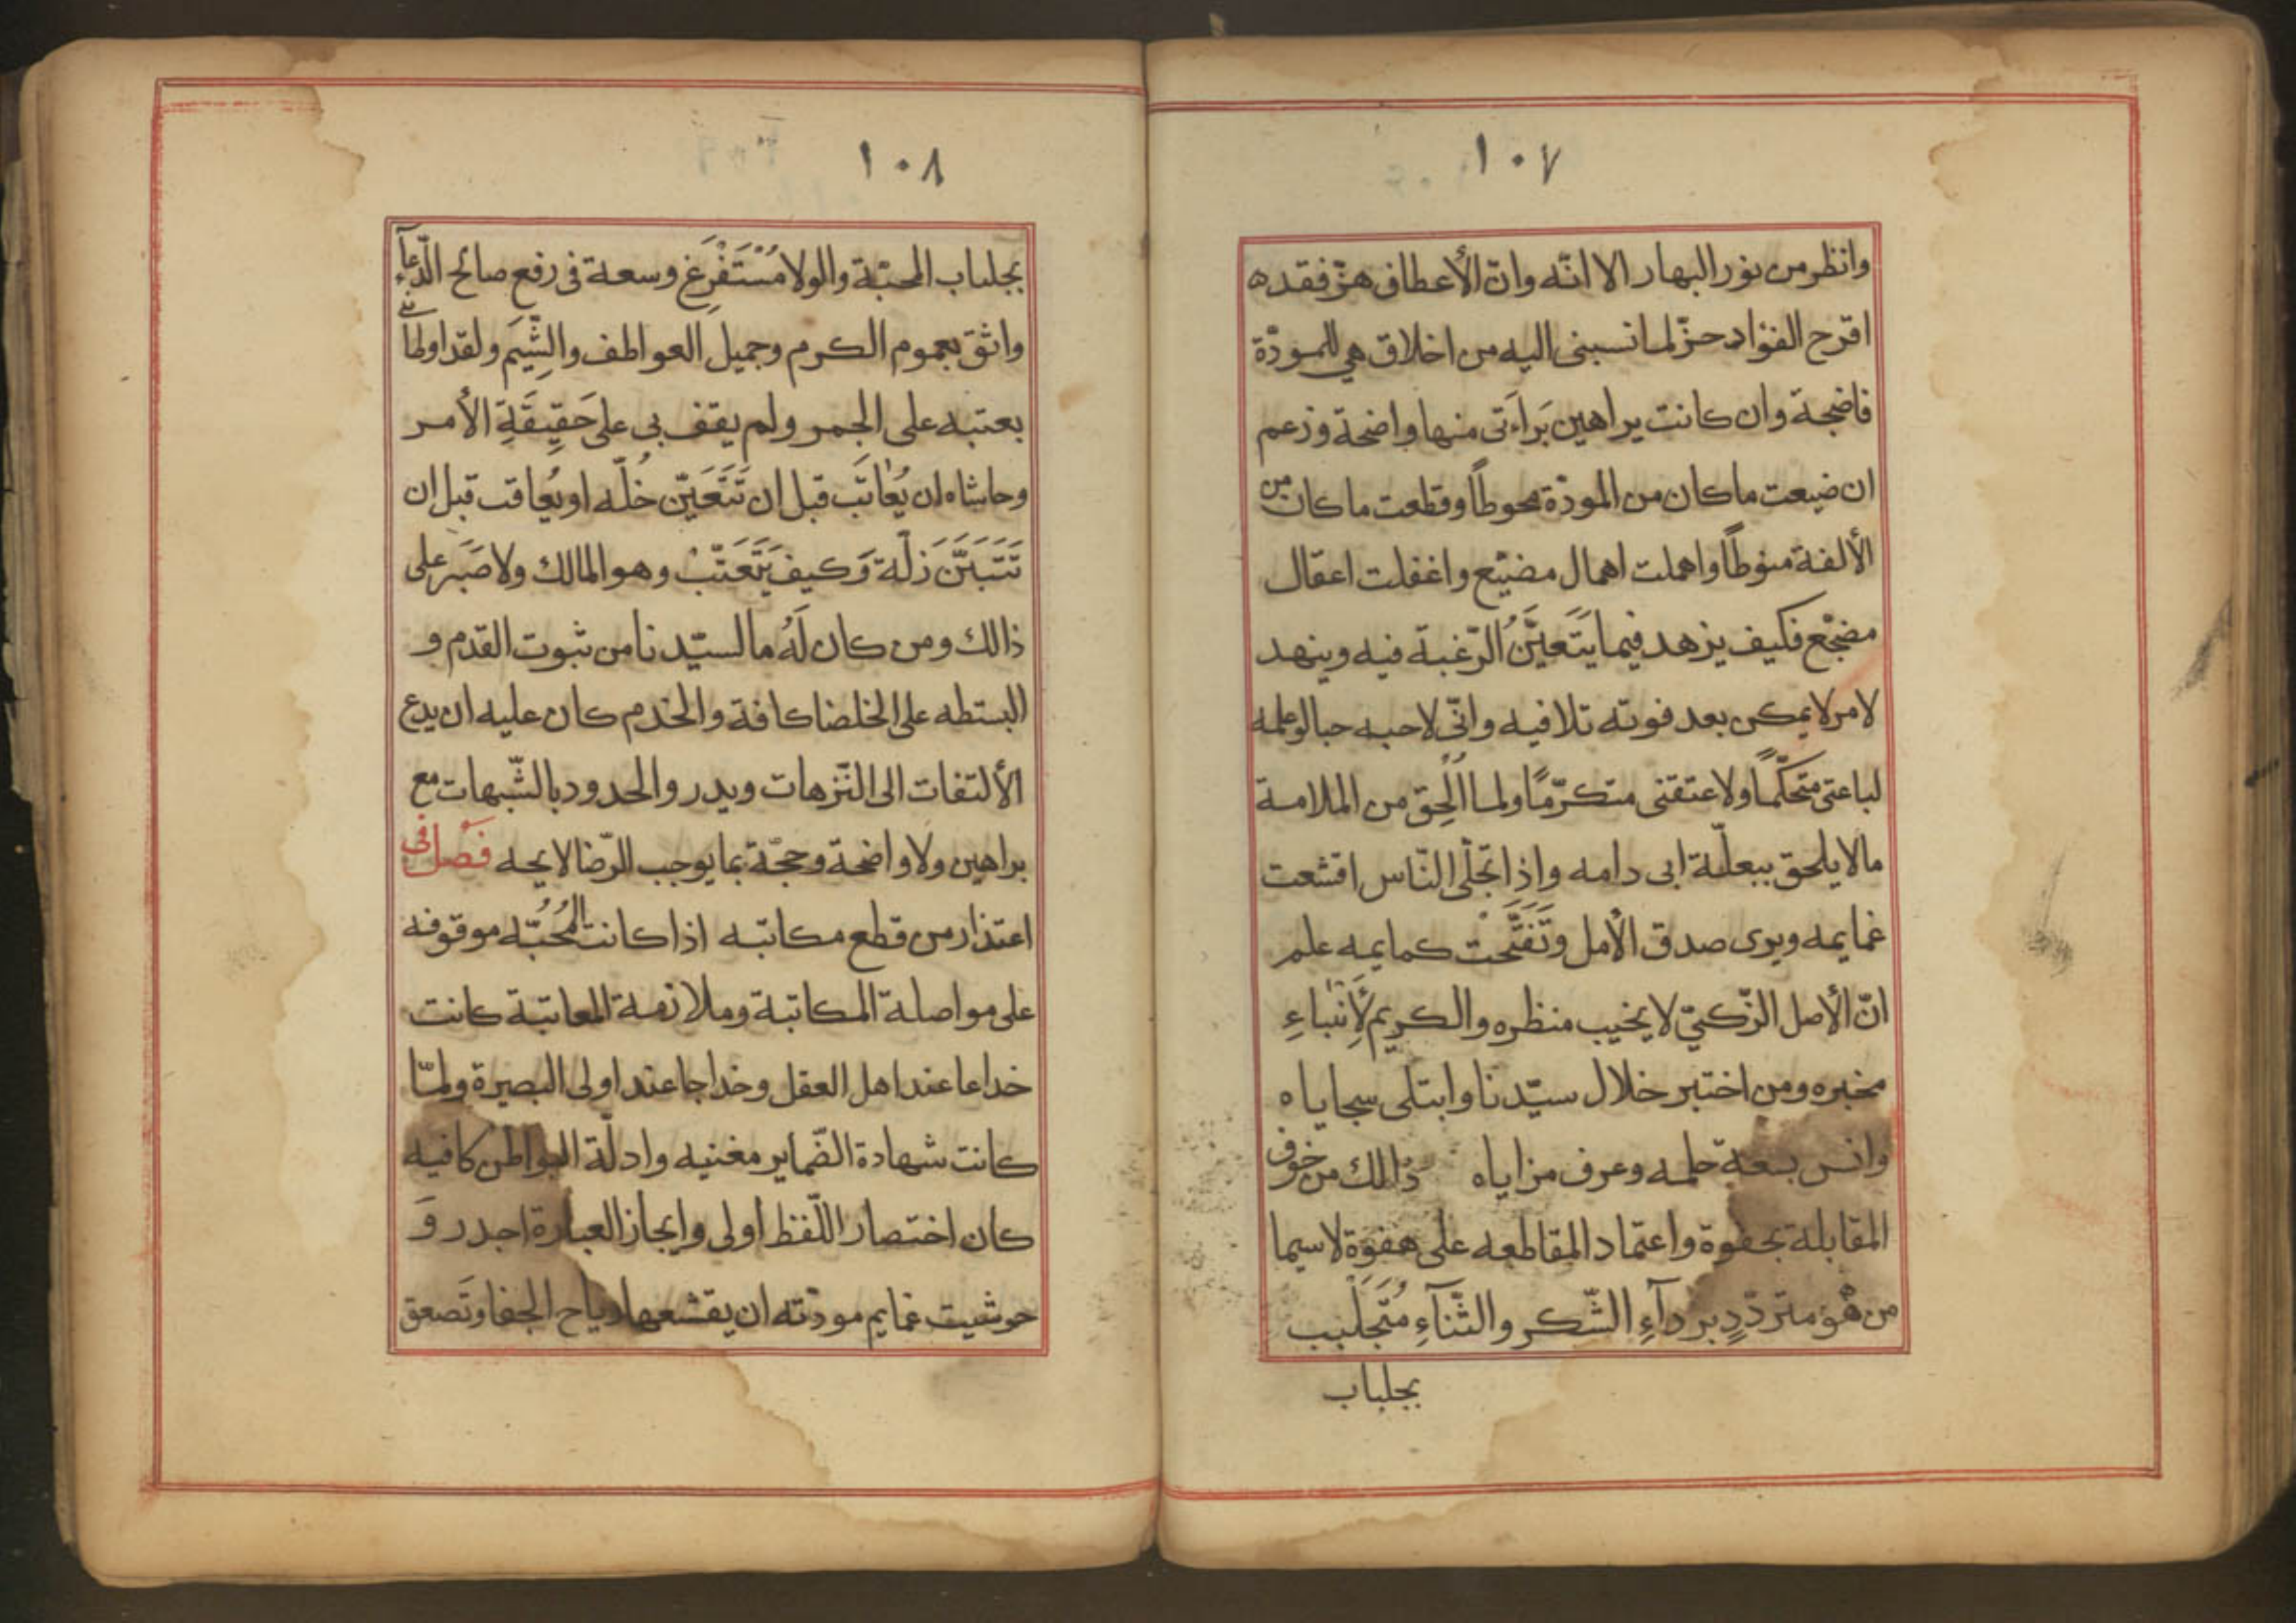 ١٠٧
وانظر من نور البهار الا انّه وانّ الأعطاف هزّ فقده
اقرح الفؤاد حزّ لما نسبنى اليه من اخلاق هي للمودّة
فاضجة وان كانت براهين بَراءَتى منها واضحة وزعم
ان ضيعت ما كان من المودّة محوطاً وقطعت ما كان من
الألفة منوطاً واهملت اهمال مضيّع واغفلت اعقال
مضجّع فكيف يزهد فيما يَتَعَيَّنُ الرّغبة فيه وينهد
لامر لا يمكن بعد فوته تلافيه وانّى لاحبه حبا لو علمه
لباعتى متحكّماً ولاعتقنى متكرّمًا ولما اُلْحِق من الملامة
مالا يلحق ببعلّة ابى دامه واذا تجلّى النّاس اقشعت
غمايمه ويرى صدق الأمل وتَفَتَّحت كمايمه علم
انّ الأصل الزّكيّ لا يخيب منظره والكريم لأِنْباءِ
مخبره ومن اختبر خلال سيّدنا وابتلى سجاياه
وانس بسعة حلمه وعرف مزاياه ذالك من خوف
المقابلة بجفوة واعتماد المقاطعه على هفوة لاسيما
من هُوَ متردّدٍ بردآءِ الشّكر والثّنآءِ مُتَجَلْبب
بجلباب
١٠٨
بجلباب المحبّة والولا مُسْتَفْرِغ وسعة فى رفع صالح الدّعآء
واثق بعموم الكرم وجميل العواطف والشِّيَم ولقد اوطأنى
بعتبه على الجمر ولم يقف بى على حَقِيقَةِ الأمر
وحاشاه ان يُعاتَب قبل ان تَتَعَيّن خُلّه او يُعاقت قبل ان
تَتَبَيَّنَ زلّة وَكيف يَتَعَتّب وهو المالك ولا صَبَر على
ذالك ومن كان لَهُ ما لسيّدنا من ثبوت القدم و
البسطه على الخلضا كافة والخدم كان عليه ان يدع
الألتفات الى النّزهات ويدرو الحدود بالشّبهات مع
براهين ولا واضحة وحجّة بما يوجب للرّضا لايحه فَصل فى
اعتذار من قطع مكاتبه اذا كانت المُحُبّه موقوفه
على مواصلة المكاتبة وملازمة المعاتبة كانت
خداعا عند اهل العقل وخداجا عند اولى البصيرة ولمّا
كانت شهادة الضّماير مغنيه وادلّة البواطن كافيه
كان اختصار اللّفظ اولى وايجاز العبارة اجدر وَ
حوشيت غمايم مودّته ان يقشعها رياح الجفا وتَصعق